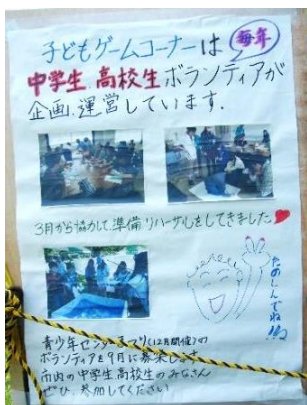 子どもゲームコーナーは 毎年
中学生、高校生ボランティアが
企画、運営しています。
3月から協力して、準備リハーサルをしてきました
たのしんでね!!
青少年センターまつり(12月開催)の
ボランティアを9月に募集します
市内の中学生高校生のみなさん
ぜひ、参加してください